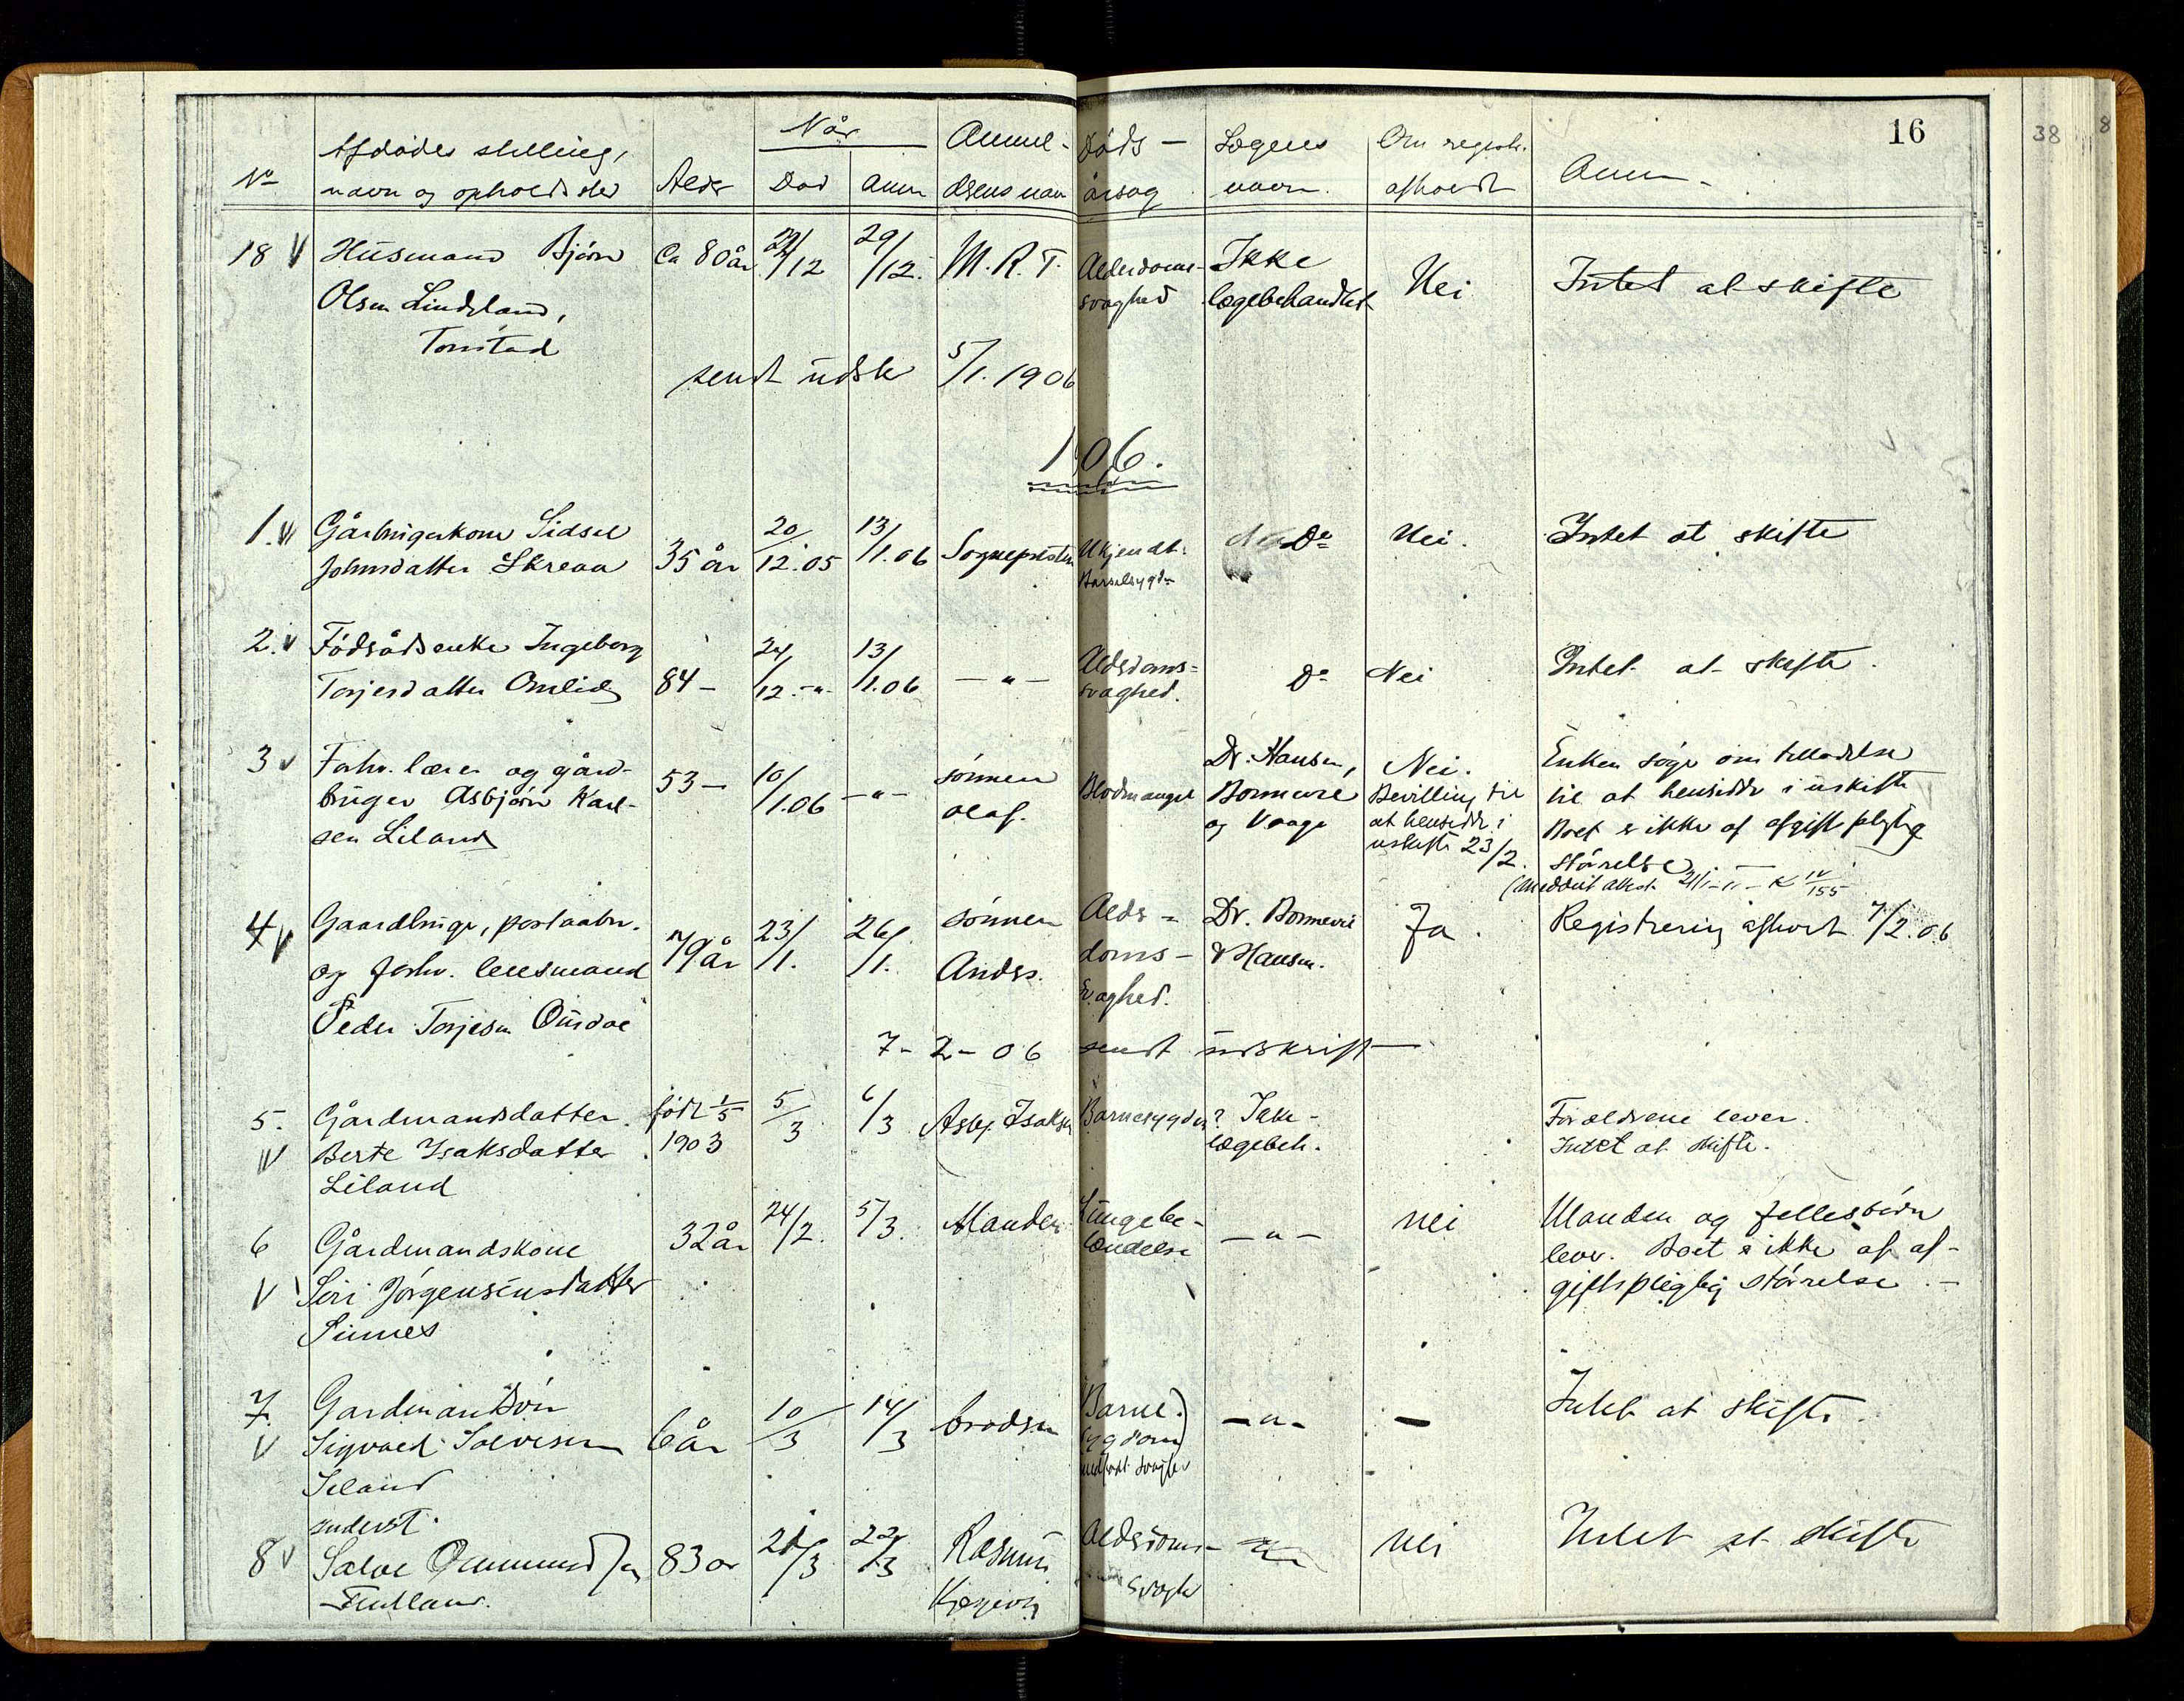 16
38
8
Når
No
Afdødes stilling,
navn og opholdssted
Alder
Død
Anm
Anmel-
delsens navn
Døds-
årsag
Lægens
navn.
Om registr.
afholdt
Anm.
18 V Husmand Bjørn
Olsen Lindeland,
Tonstad
Ca 80 år
/12
29/12.
M. R. T.
Alderdoms-
svaghed
Ikke
lægebehandlet
Nei
Intet at skifte
sendt udskr 5/1. 1906
1906.
1. V Gårbrugerkone Sidsel
Johnsdatter Skreaa
35 år
20/12.05
13/1.06
Sognepresten
Ukjendt.
Barselsygdom
Do
Nei.
Intet at skifte
2. V Föderådsenke Ingeborg
Torjesdatter Omlid
84 -
24/12. -"-
13/1.06
- " -
Alderdoms-
svaghed.
Do
Nei
Intet at skifte.
3 V Forhv. lærer og gård-
bruger Asbjørn Karl-
sen Liland
53 -
10/1.06
- " -
sönnen
Olaf.
Blodmangel
Dr. Hansen,
Bonnevie
og Vaage
Nei.
Bevilling til
at hensidde i
uskifte 23/2.
Enken søger om tilladelse
til at hensidde i uskifte
Boet er ikke af afgift pligtig
störrelse
(Meddelt attest
4 V Gaardbruger, postaabn.
og forhv. lensmand
Peder Torjesen Ousdal
79 år
23/1.
26/1.
sönnen
Anders.
Alder-
doms-
svaghed.
Dr. Bonnevie
& Hansen.
Ja.
Registrering afholdt 7/2.06
7-2-06 sendt udskrift
5. V Gårdmandsdatter
Berte Isaksdatter
Liland
födt 1/5
1903
5/3
6/3
Asbj. Isaksen
Barnesygdom?
Ikke
lægebeh.
Forældrene lever.
Intet at skifte.
6 V Gårdmandskone
Siri Jörgensensdatter
Sinnes
32 år
24/2.
5/3.
Manden
Lungebe-
tændelse
- " -
Nei
Manden og fellesbörn
lever. Boet er ikke af af-
giftspligtig störrelse. -
7. V Gardmandsön
Sigvald Salvesen
6 år
10/3
14/3
broderen
Barne-
sygdom)
medfødt svaghed
- " -
-
Intet at skifte.
8 V inderst.
Salve Ommundsen
83 år
21/3
22/3
Rasmus
Alderdoms-
svaghed
Nei
Intet at skifte